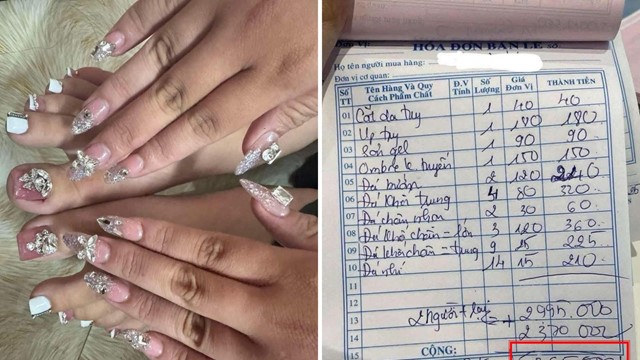 HÓA ĐƠN BÁN LẺ SỐ
Họ tên người mua hàng:
Đơn vị cơ quan:
Số TT Tên Hàng Và Quy Cách Phẩm Chất Đ.V Tính Số Lượng Giá Đơn Vị THÀNH TIỀN
01 Cắt da tay 1 40 40
02 Úp tay 1 180 180
03 Sơn gel 1 90 90
04 Ombre 1 150 150
05 Đá 2 120 240
06 Đá Khối trung 4 80 320
07 Đá chân nhọn 2 30 60
08 Đá khối chân - lớn 3 120 360
09 Đá khối chân - trung 9 25 225
10 Đá nhỏ 14 15 210
11
12
13
14 2 người + lại = + 2995.000
15
CỘNG: